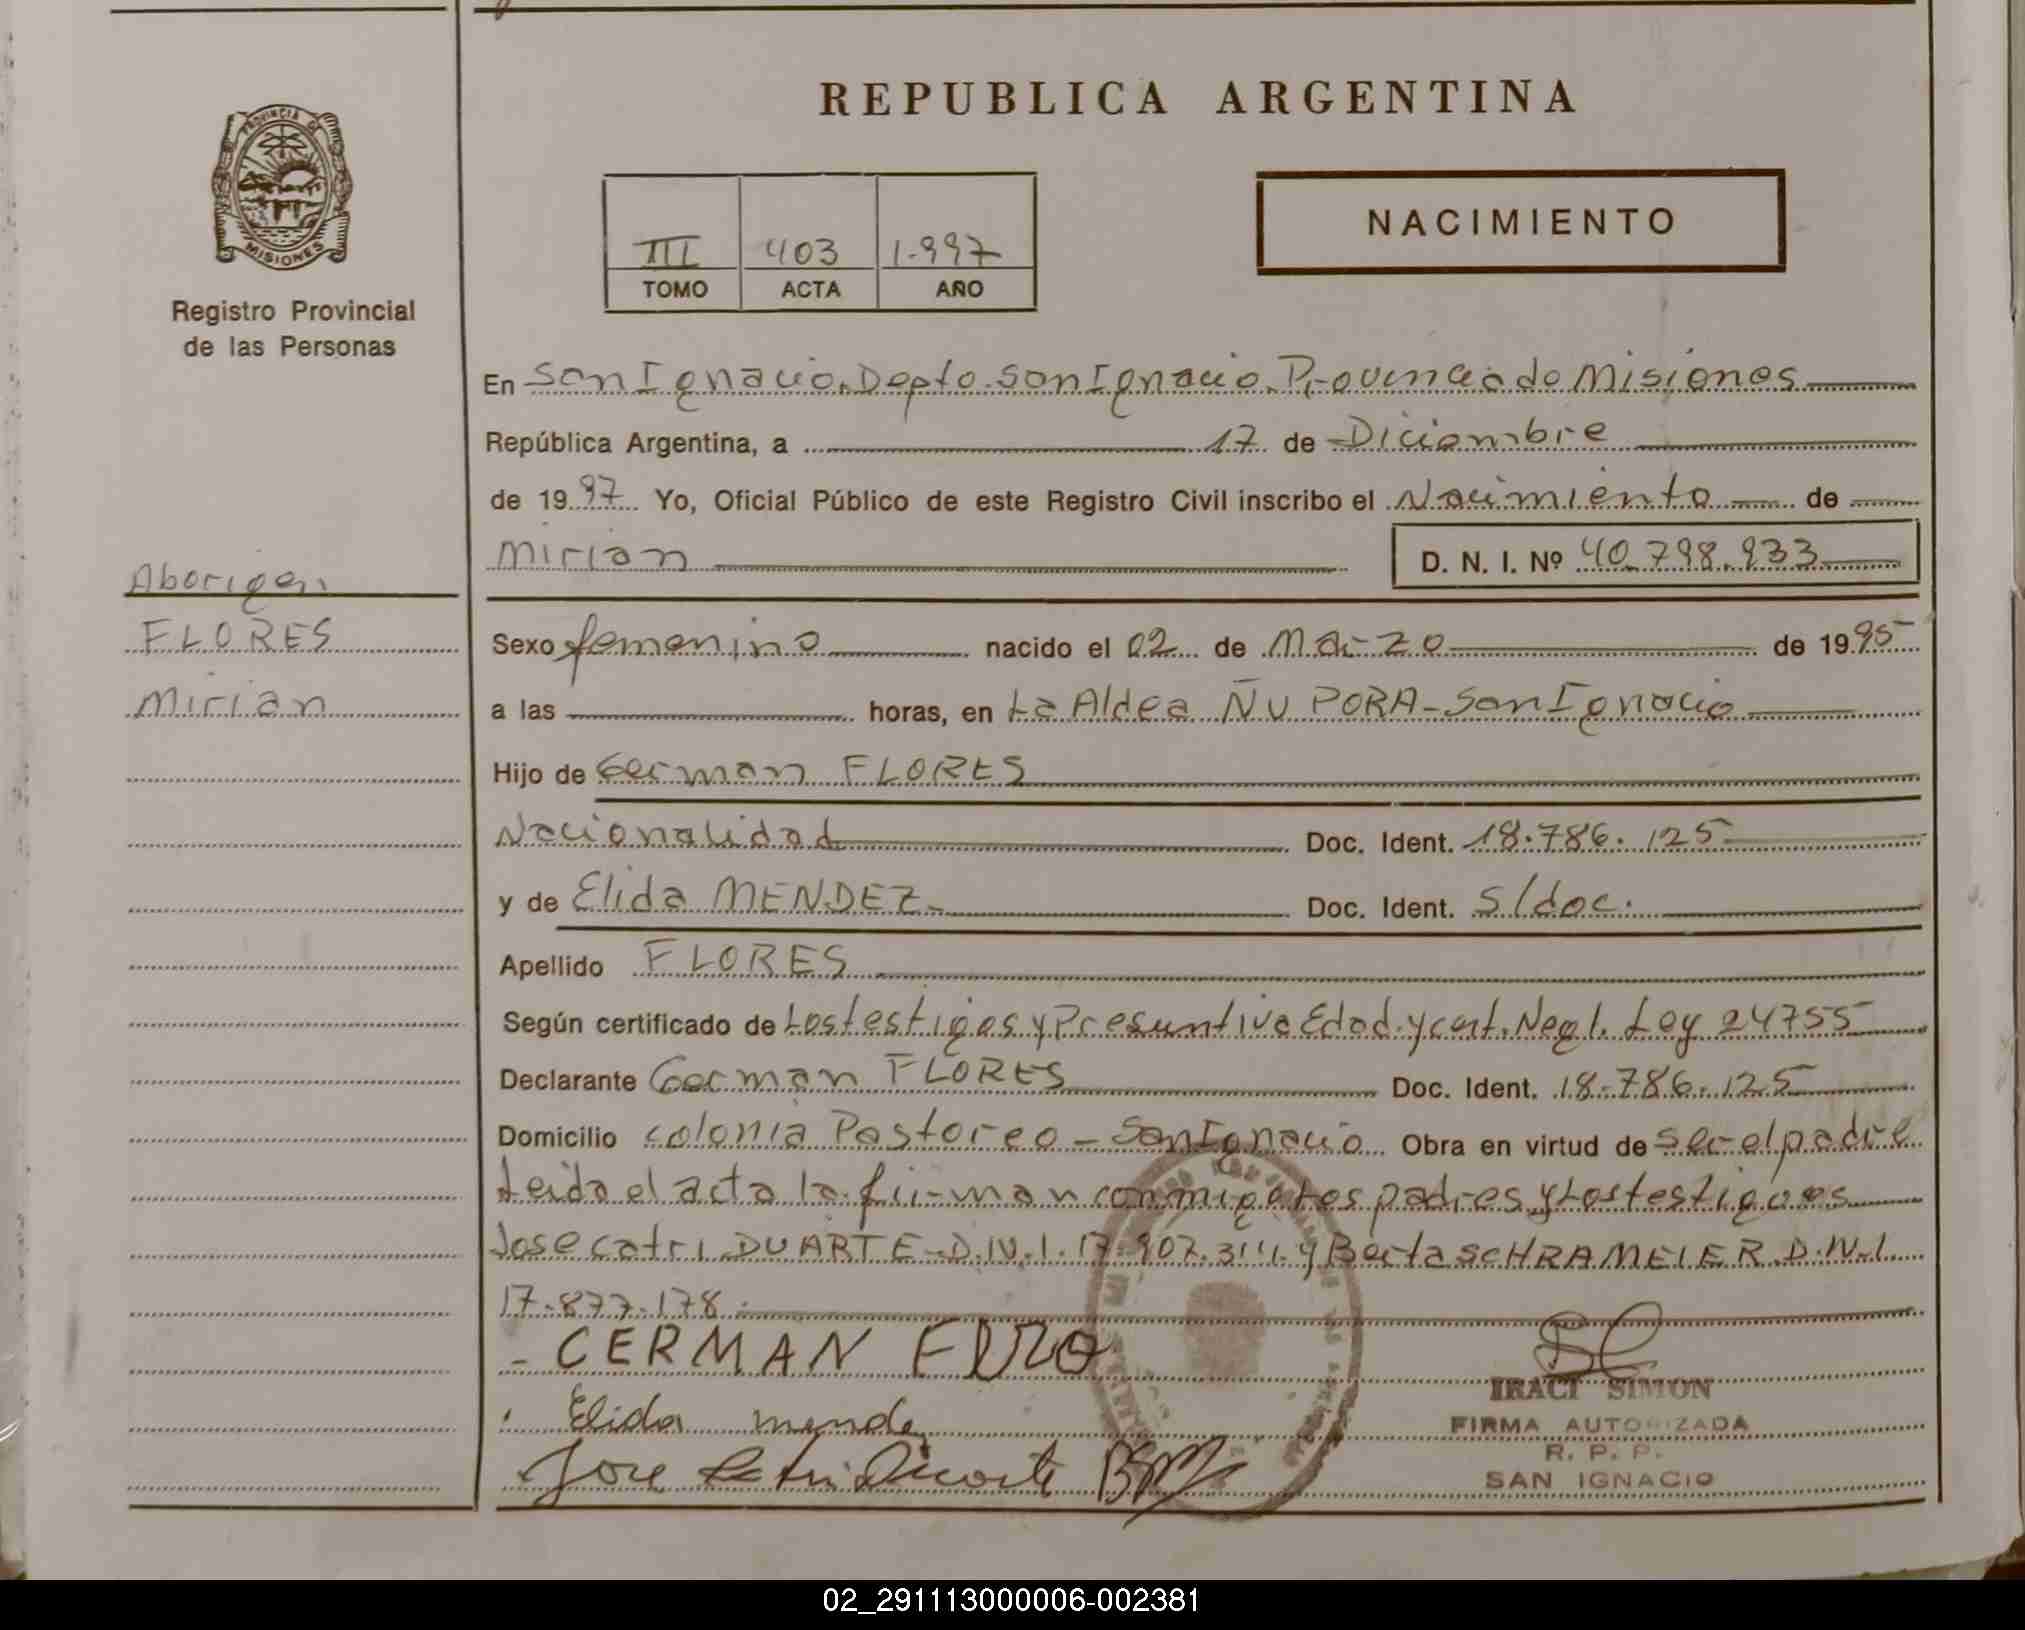 REPUBLICA ARGENTINA
PROVINCIA DE
MISIONES
Registro Provincial
de las Personas
III 403 1.997
TOMO ACTA AÑO
NACIMIENTO
En San Ignacio. Depto. San Ignacio. Provincia de Misiones
República Argentina, a 17 de Diciembre
de 1997 Yo, Oficial Público de este Registro Civil inscribo el Nacimiento de
Mirian D. N. I. Nº 40.798.933
Aborigen
FLORES
Mirian
Sexo femenino nacido el 02 de Marzo de 1995
a las horas, en La Aldea ÑU PORA - San Ignacio
Hijo de German FLORES
Nacionalidad Doc. Ident. 18.786.125
y de Elida MENDEZ- Doc. Ident. s/doc.
Apellido FLORES
Según certificado de Los testigos y Presuntiva Edad. y cert. Negt. Ley 24755
Declarante German FLORES Doc. Ident. 18.786.125
Domicilio colonia Pastoreo - San Ignacio Obra en virtud de ser el padre
Leida el acta la firman conmigo Los padres y Los testigos
Jose Catri DUARTE - D.N.I. 17.907.311. y Berta SCHRAMEIER D.N.I.
17.877.178
- CERMAN
Elida mende
Jose Catri Duarte
IRACI SIMON
FIRMA AUTORIZADA
R. P. P.
SAN IGNACIO
02_291113000006-002381